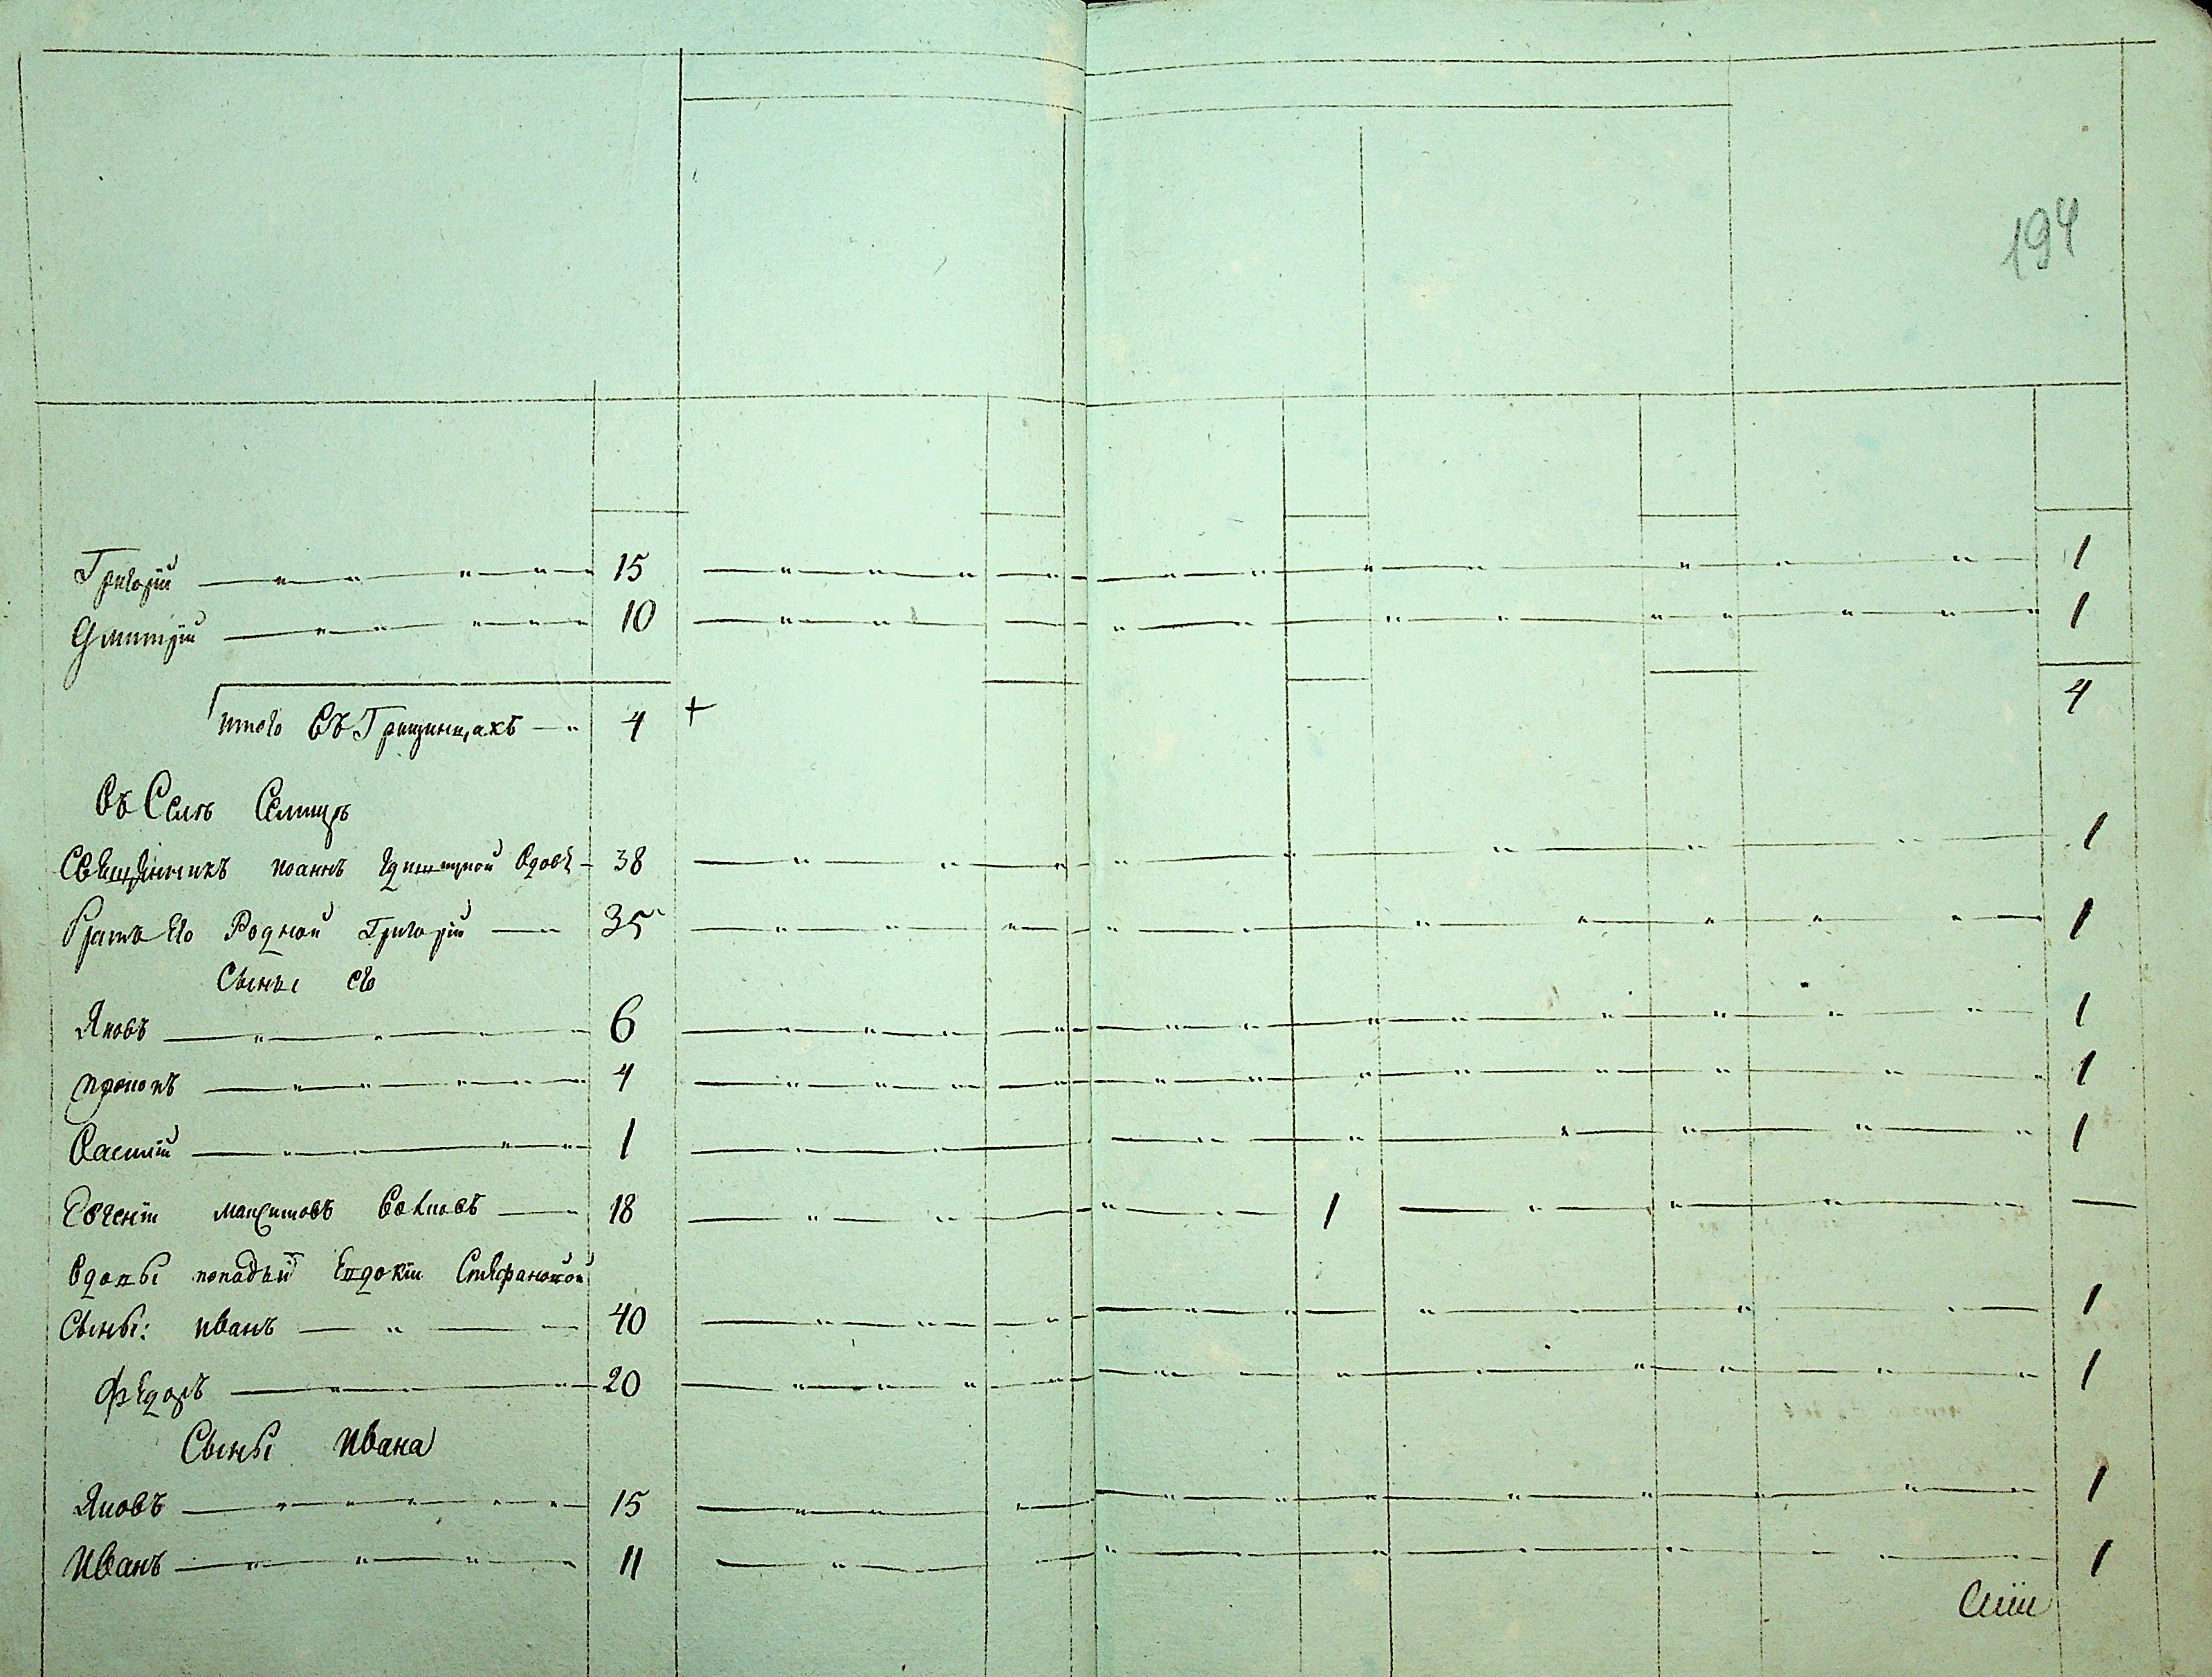 194
Григорій 15 1
Дмитрій 10 1
итого въ Грищинцахъ 4 + 4
Въ Селѣ Селищѣ
Священникъ иоаннъ вдовъ 38 1
братъ его Родной Григорій 35 1
Сыны его
Яковъ 6 1
прокопъ 4 1
Василій 1 1
Евгеній максимовъ 18 1 —
вдовы попадьи Евдокіи Стефановой
Сыны: иванъ 40 1
федоръ 20 1
Сыны ивана
Яковъ 15 1
иванъ 11 1